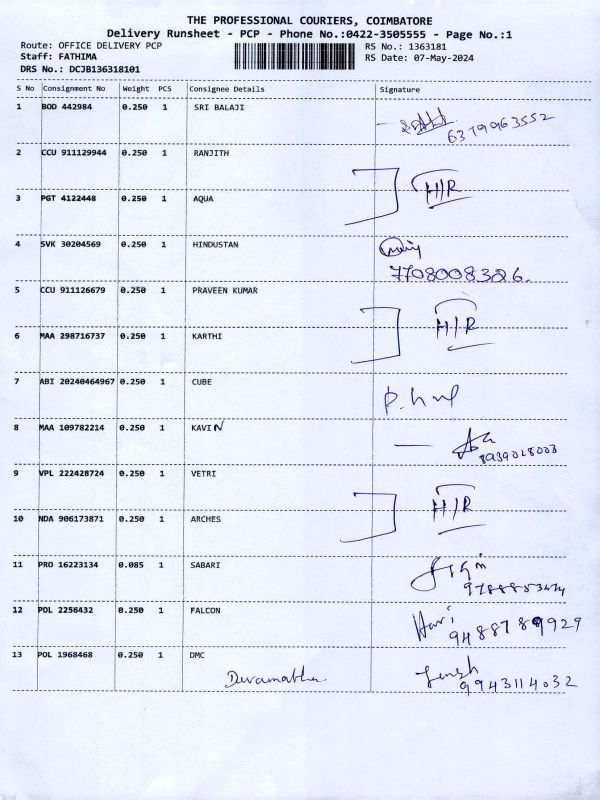 THE PROFESSIONAL COURIERS, COIMBATORE
Delivery Runsheet - PCP - Phone No.:0422-3505555 - Page No.:1
Route: OFFICE DELIVERY PCP RS No.: 1363181
Staff: FATHIMA RS Date: 07-May-2024
DRS No.: DCJB136318101
S No Consignment No Weight PCS Consignee Details Signature
1 BOD 442984 0.250 1 SRI BALAJI
6379963552
2 CCU 911129944 0.250 1 RANJITH
H/R
3 PGT 4122448 0.250 1 AQUA
4 SVK 30204569 0.250 1 HINDUSTAN
7708008326.
5 CCU 911126679 0.250 1 PRAVEEN KUMAR
H/R
6 MAA 298716737 0.250 1 KARTHI
7 ABI 20240464967 0.250 1 CUBE
8 MAA 109782214 0.250 1 KAVIN
8939028003
9 VPL 222428724 0.250 1 VETRI
H/R
10 NDA 906173871 0.250 1 ARCHES
11 PRO 16223134 0.085 1 SABARI
9788853474
12 POL 2256432 0.250 1 FALCON Hari
9488789929
13 POL 1968468 0.250 1 DMC
Devamatha 9943114032